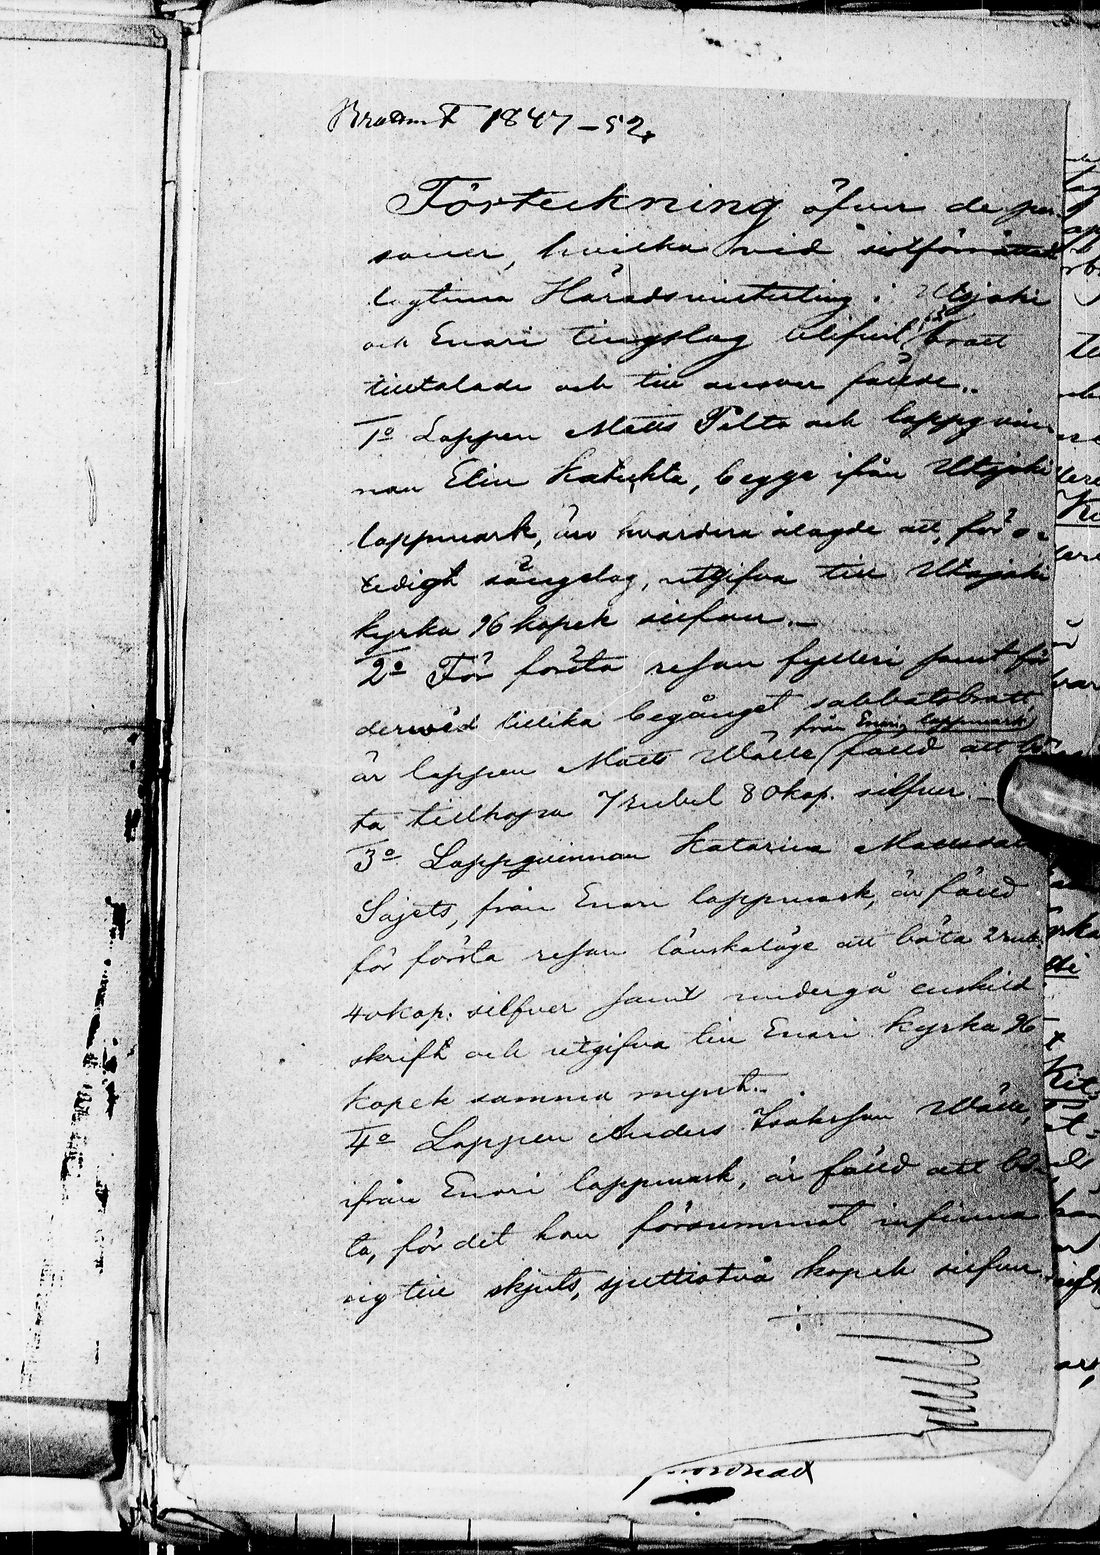 1847–52.
Förteckning öfver de per
soner, hvilka vid sistförrättade
lagtima Häradsvinterting i Utsjoki
och Enari tingslag blifvit för brott
tilltalade och till ansvar fällde.
1o Lappen Matts Pilto och lappqvin
nan Elin, begge ifrån Utsjoki
lappmark, äro hvardera ålagde att, för o-
tidigt sängelag, utgifva till Utsjoki
kyrka 96 kopek silfver.
2o För första resan fylleri samt
derwid tillika begånget sabbatsbrott,
är lappen Matts Wälle från Enari lappmark fälld att bö
ta tillhopa 7 rubel 80 kop. silfver.
3o Lappqvinnan Katarina Mattsdotter
Sajets, från Enari lappmark, är fälld
för första resan lönskaläge att böta 2 rub.
40 kop. silfver samt undergå enskild
skrift och utgifva till Enari kyrka 96
kopek samma mynt.
4o Lappen Anders Isaksson Wälle,
ifrån Enari lappmark, är fälld att bö
ta, för det han försummat infinna
sig till skjuts, sjuttiotvå kopek silfver.